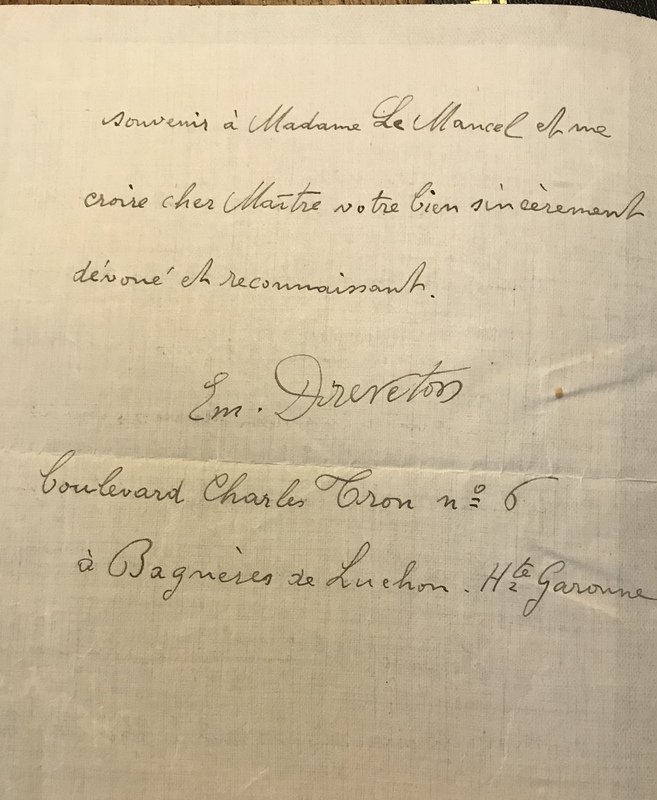 souvenir à Madame Le Mancel et me
croire cher Maître votre bien sincèrement
dévoué et reconnaissant.
Em. Dreveton
boulevard Charles Tron nº 6
à Bagnères de Luchon. Hte Garonne